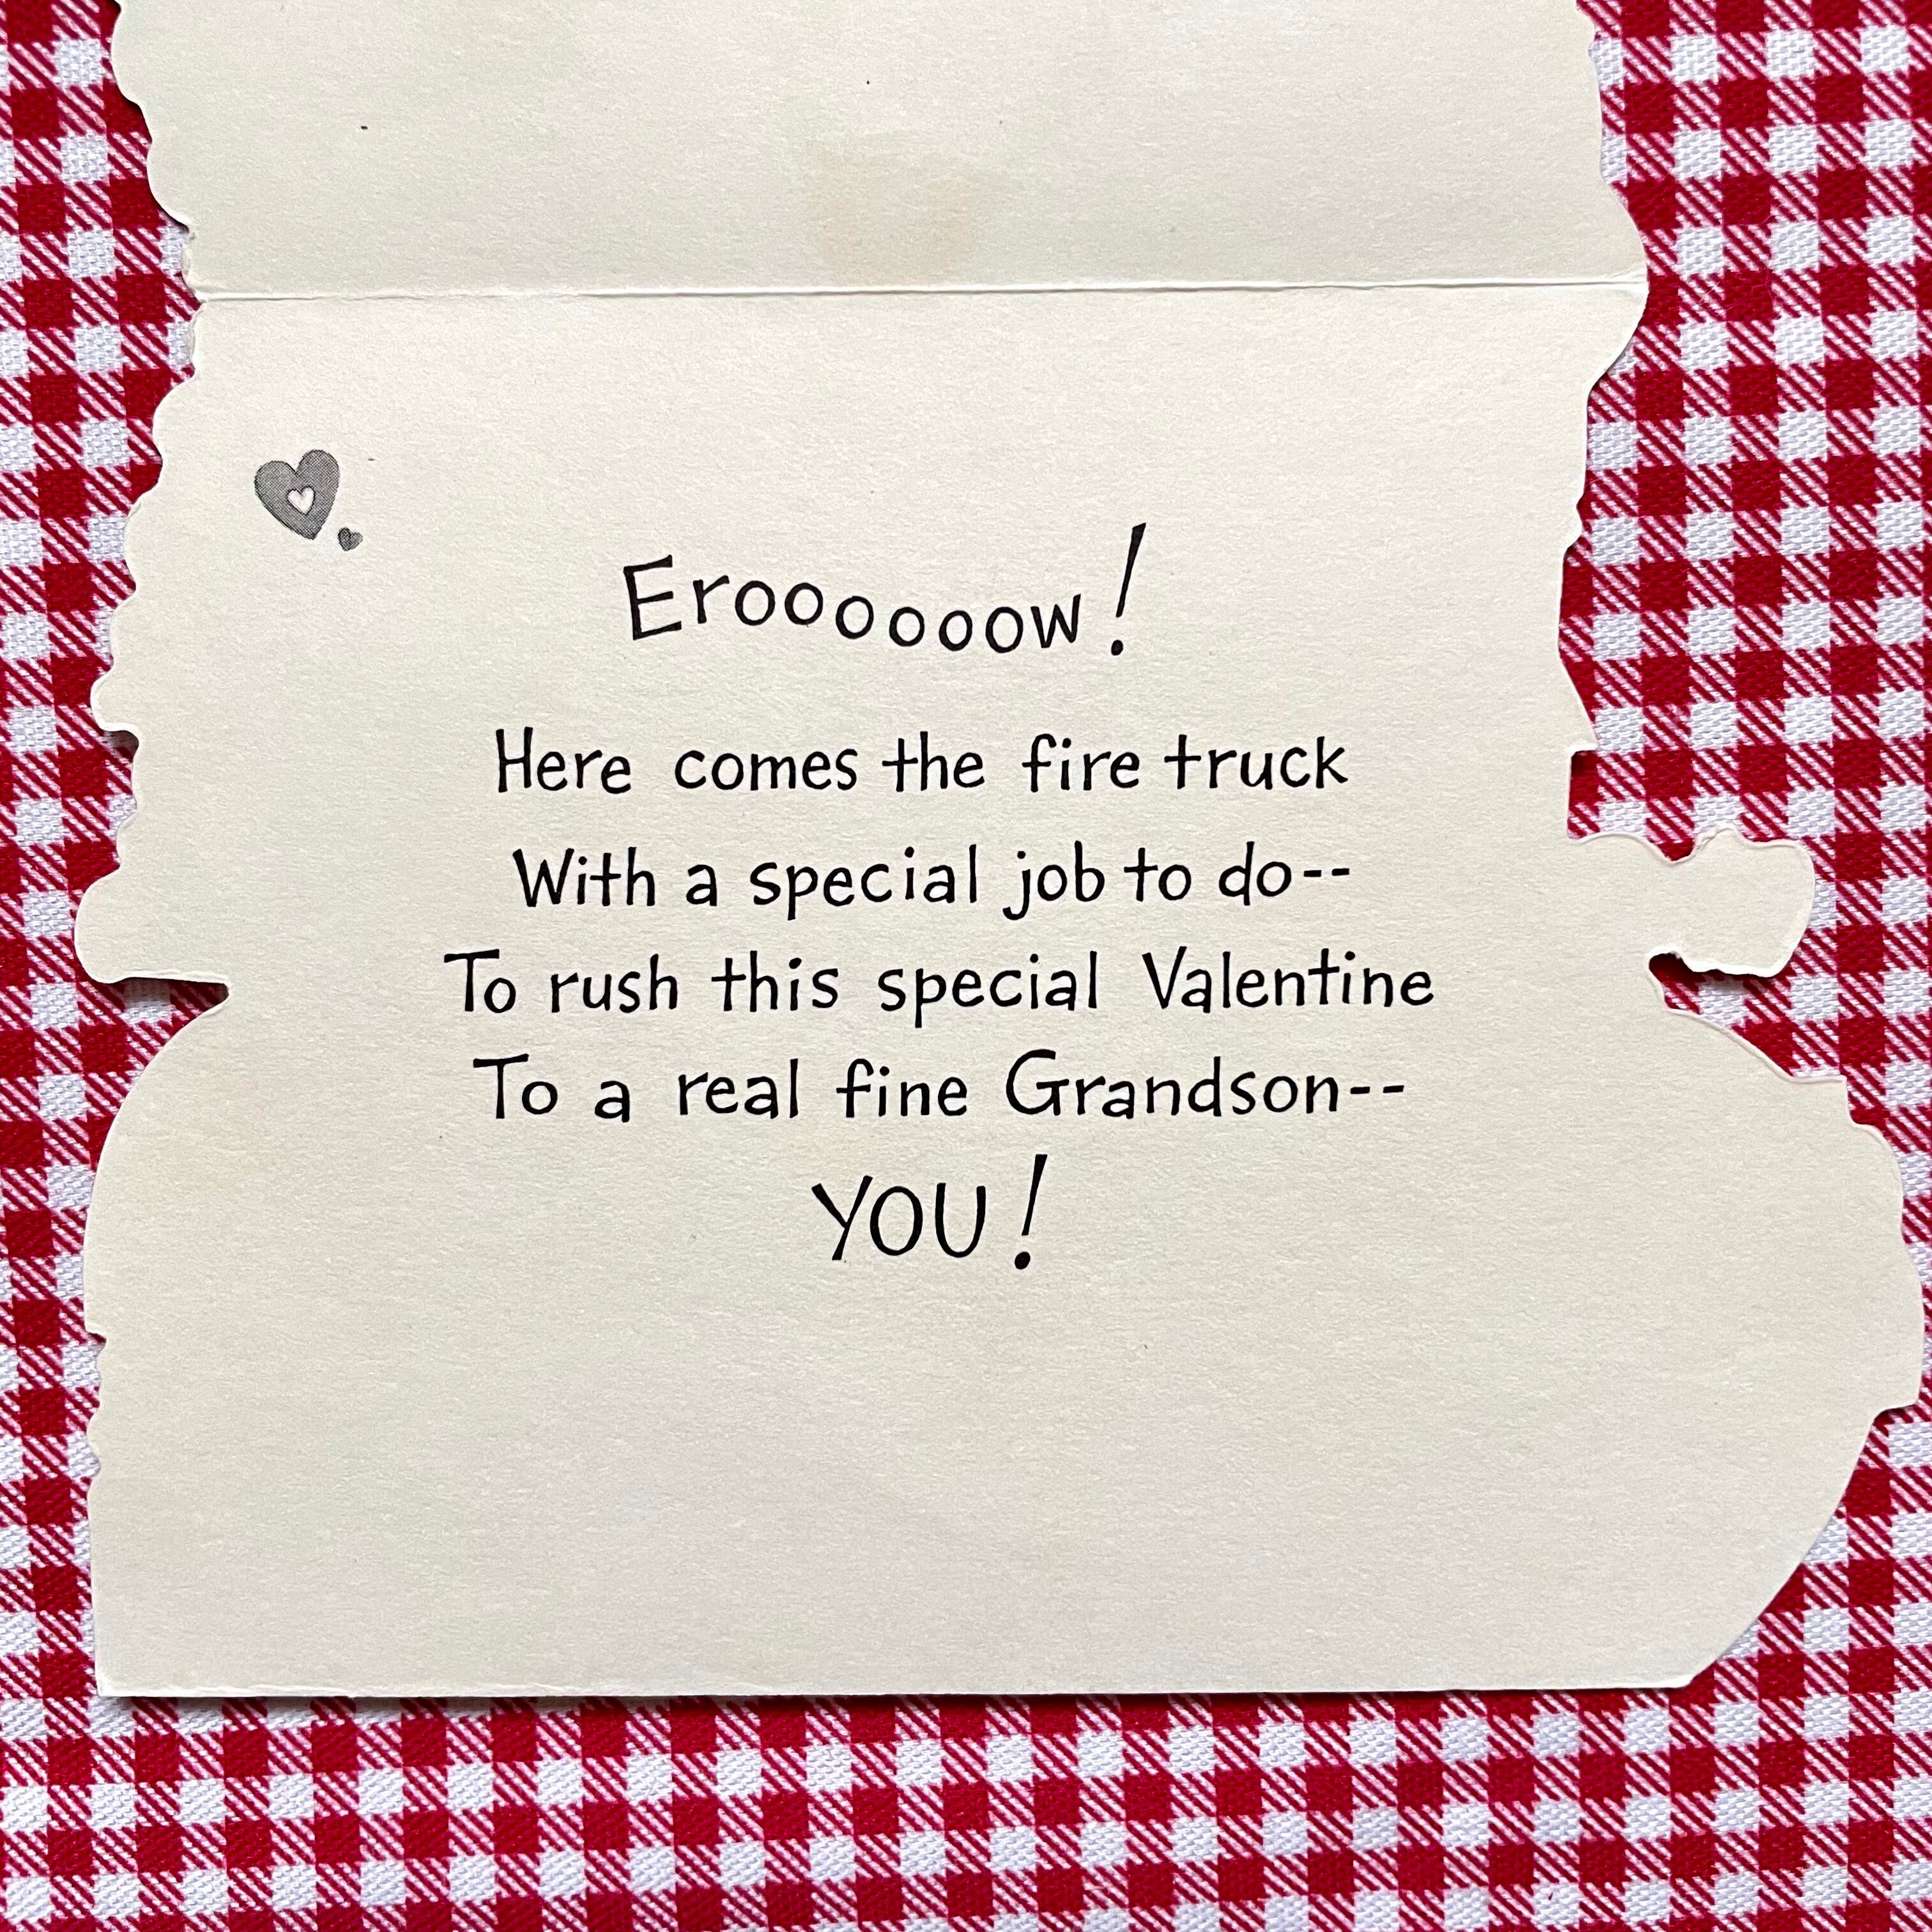 Eroooooow!
Here comes the fire truck
With a special job to do--
To rush this special Valentine
To a real fine Grandson--
YOU!